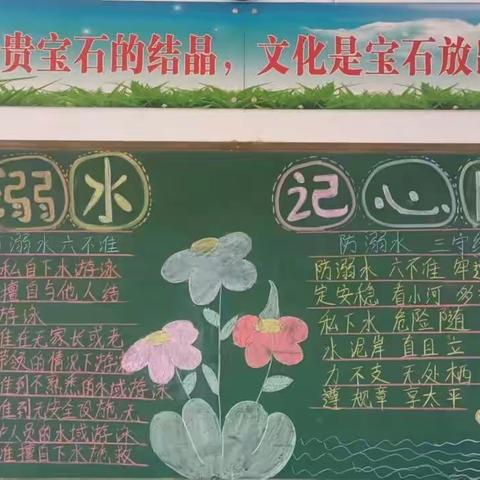 贵宝石的结晶，文化是宝石放
溺水
记心
溺水六不准
私自下水游泳
擅自与他人结
游泳
准在无家长或老
带领的情况下游
准到不熟悉的水域游泳
准到无安全设施、无
人员的水域游泳
准擅自下水施救
防溺水 三字
防溺水 六不准 牢
定安稳 看小河 多
私下水 危险随
水泥岸 直且立
力不支 无处栖
遵规章 享太平